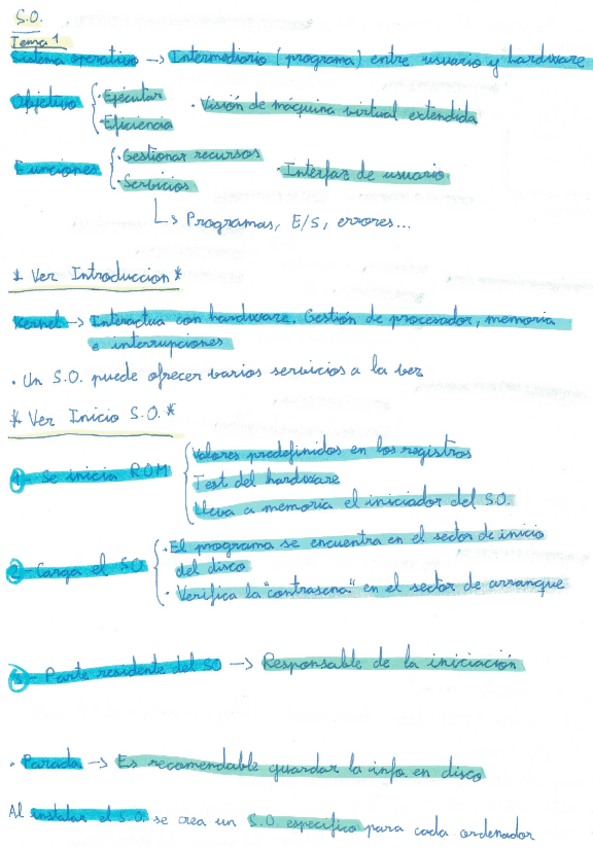 S.O.
Tema 1
Sistema operativo -> Intermediario (programa) entre usuario y hardware
Objetivo { · Ejecutar
· Eficiencia
· Visión de máquina virtual extendida
Funciones { · Gestionar recursos
· Servicios
· Interfaz de usuario
↳ Programas, E/S, errores...
* Ver Introduccion *
Kernel -> Interactua con hardware. Gestión de procesador, memoria
e interrupciones
· Un S.O. puede ofrecer varios servicios a la vez
* Ver Inicio S.O. *
1 - Se inicia ROM { Valores predefinidos en los registros
Test del hardware
Lleva a memoria el iniciador del S.O.
2 - Carga el SO { · El programa se encuentra en el sector de inicio
del disco
· Verifica la "contraseña" en el sector de arranque
3 - Parte residente del SO -> Responsable de la iniciación
· Parada -> Es recomendable guardar la info. en disco
Al instalar el S.O. se crea un S.O. especifico para cada ordenador